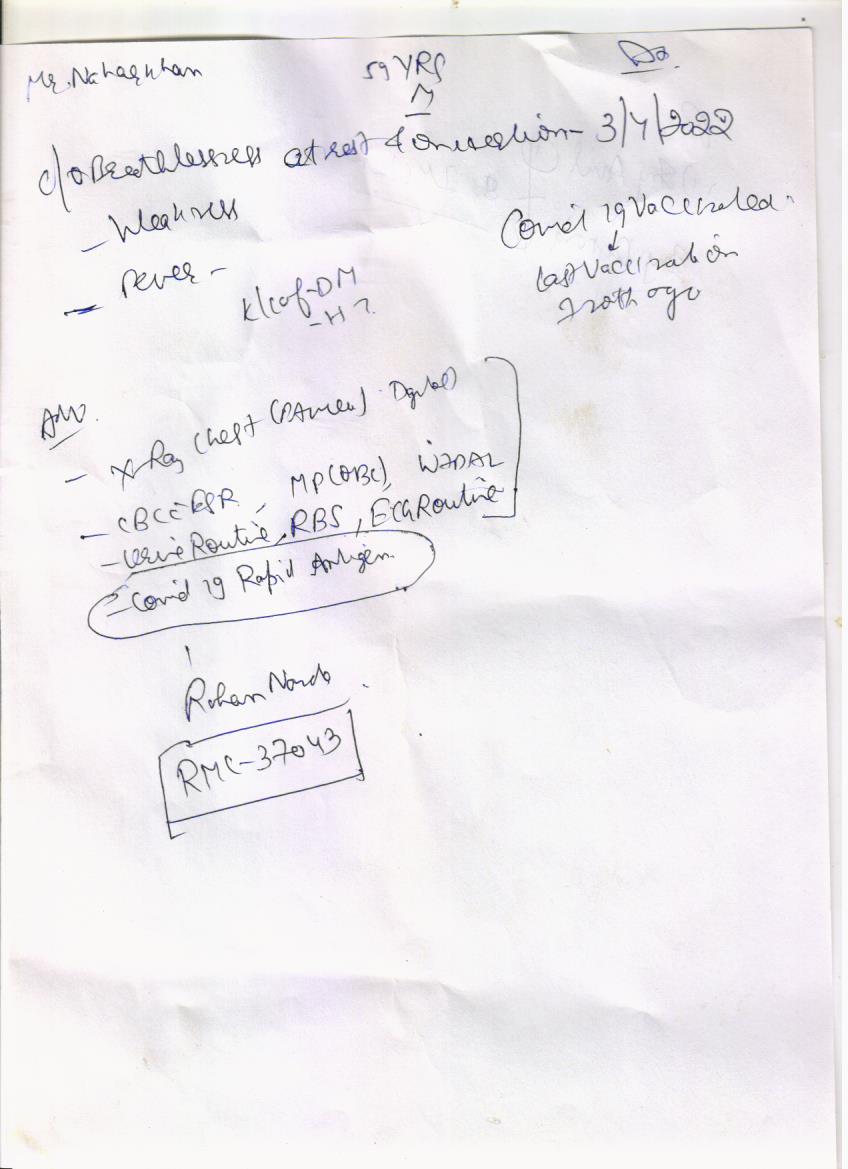 Mr. Nahar Khan 59 YRS
M
c/o Breathlessness at rest & on exertion - 3/4/2022
- Weakness
- Fever -
K/c of - DM
- H ?
Covid 19 Vaccinated.
↓
Last Vaccination
ago
Adv.
- X-Ray Chest (PA view) Digital
- CBC ESR, MP (QBC), WIDAL
- Urine Routine, RBS, ECG Routine
- Covid 19 Rapid Antigen.
Rohan
RMC-37043